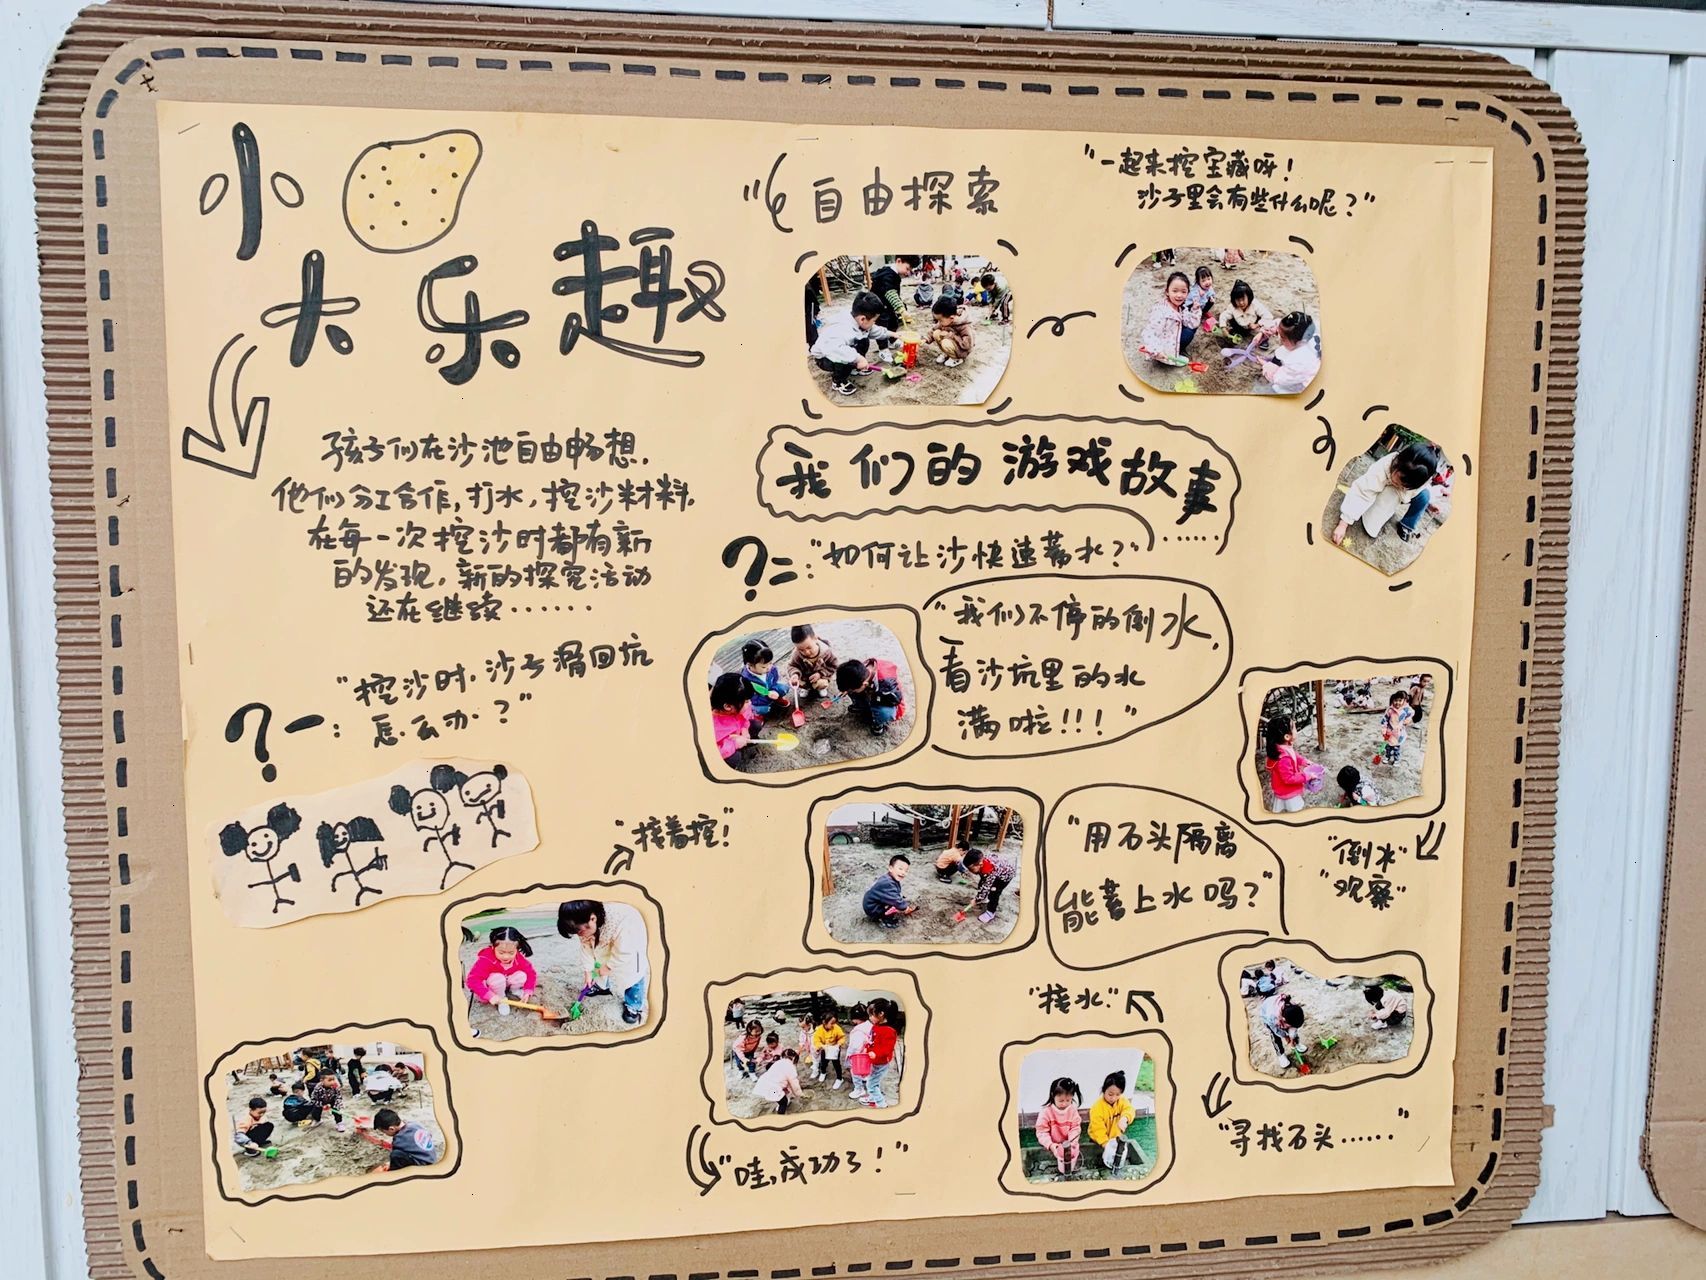 小
大乐趣
孩子们在沙池自由畅想.
他们分工合作,打水,挖沙材料.
在每一次挖沙时都有新
的发现,新的探究活动
还在继续……
?一:"挖沙时,沙子漏回坑
怎么办?"
"接着挖!"
自由探索
"一起来挖宝藏呀!
沙子里会有些什么呢?"
我们的游戏故事
……
?二:"如何让沙快速蓄水?"
"我们不停的倒水,
看沙坑里的水
满啦!!!"
"倒水"
"观察"
"用石头隔离
能蓄上水吗?"
"接水"
"寻找石头……"
"哇,成功了!"